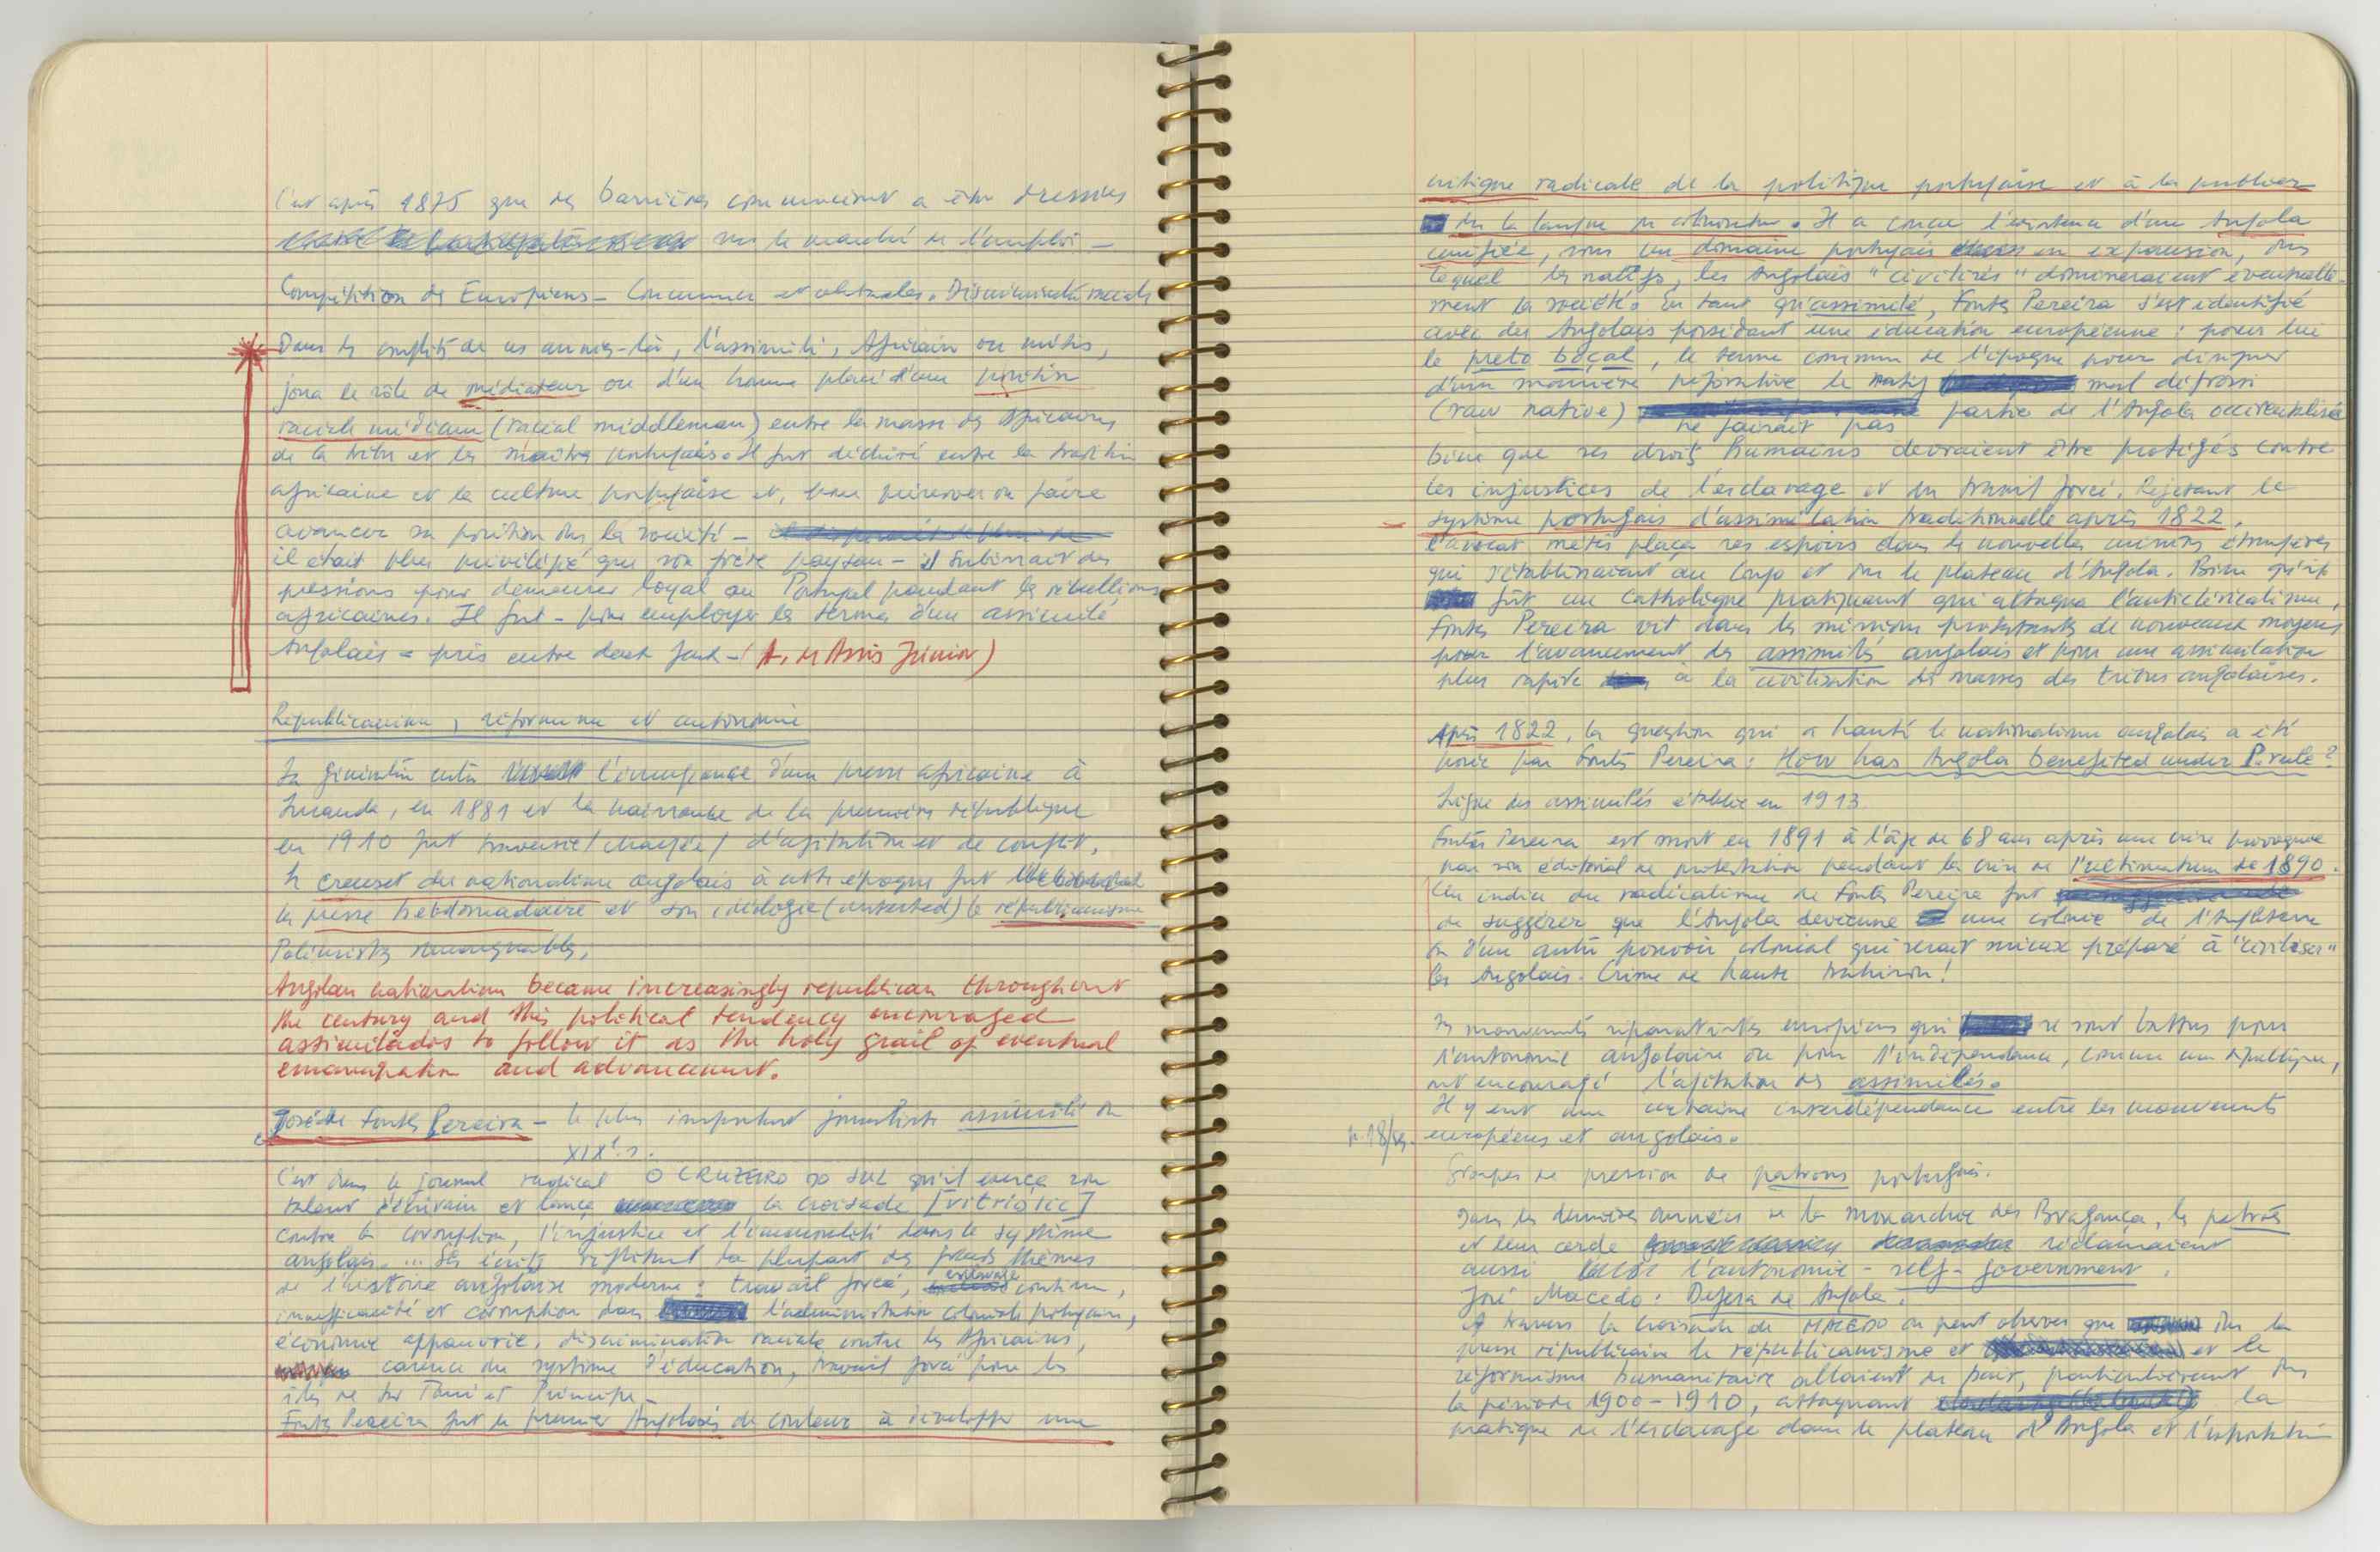 C'est après 1875 que des barrières commencèrent a être dressées
sur le marché de l'emploi -
Compétition des Européens - Concurrence et obstacles. Discrimination raciale
Dans les conflits de ces années-là, l'assimilé, Africain ou métis,
joua le rôle de médiateur ou d'un homme placé d'une position
raciale médiane (racial middleman) entre la masse des Africains
de la tribu et les maîtres portugais. Il fut déchiré entre la tradition
africaine et la culture portugaise et, pour préserver ou faire
avancer sa position ds la société -
il était plus privilégié que son frère paysan - il subissait des
pressions pour demeurer loyal au Portugal pendant les rébellions
africaines. Il fut - pour employer les termes d'un assimilé
Angolais - pris entre deux feux - (A. de Assis Júnior)
Républicanisme, réformisme et autonomie
La génération entre l'émergence d'une presse africaine à
Luanda, en 1881 et la naissance de la première république
en 1910 fut traversée/chargée/ d'agitation et de conflit.
Le creuset du nationalisme angolais à cette époque fut
la presse hebdomadaire et son idéologie (untested) le républicanisme
Polémistes remarquables,
Angolan nationalism became increasingly republican throughout
the century and this political tendency encouraged
assimilados to follow it as the holy grail of eventual
emancipation and advancement.
José de Fontes Pereira - le plus important journaliste assimilé du
XIXè. s.
C'est dans le journal radical O CRUZEIRO DO SUL qu'il exerça son
talent d'écrivain et lança la croisade [vitriolic]
contre la corruption, l'injustice et l'immoralité dans le système
angolais. ... Ses écrits reflètent la plupart des grands thèmes
de l'histoire angolaise moderne : travail forcé, esclavage continu,
inefficacité et corruption dans l'administration coloniale portugaise,
économie appauvrie, discrimination raciale contre les Africains,
carence du système d'éducation, travail forcé pour les
îles de São Tomé et Principe -
Fontes Pereira fut le premier Angolais de couleur à développer une
critique radicale de la politique portugaise et à la publier
ds la langue du colonisateur. Il a conçu l'existence d'une Angola
unifiée, sous un domaine portugais en expansion, ds
lequel les natifs, les Angolais "civilisés" domineraient éventuelle-
ment la société. En tant qu'assimilé, Fontes Pereira s'est identifié
avec des Angolais possédant une éducation européenne : pour lui
le preto boçal, le terme commun de l'époque pour désigner
d'une manière péjorative le natif mal dégrossi
(raw native) ne faisait pas partie de l'Angola occidentalisée
bien que ses droits humains devraient être protégés contre
les injustices de l'esclavage et du travail forcé. Rejetant le
système portugais d'assimilation traditionnelle après 1822,
l'avocat métis plaça ses espoirs dans les nouvelles missions étrangères
qui s'établissaient au Congo et sur le plateau d'Angola. Bien qu'il
fût un catholique pratiquant qui attaqua l'anticléricalisme,
Fontes Pereira vit dans les missions protestantes de nouveaux moyens
pour l'avancement des assimilés angolais et pour une assimilation
plus rapide à la civilisation des masses des tribus angolaises.
Après 1822, la question qui a hanté le nationalisme angolais a été
posée par Fontes Pereira : How has Angola benefited under P. rule?
Ligue des assimilés établie en 1913.
Fontes Pereira est mort en 1891 à l'âge de 68 ans après une crise provoquée
par son éditorial de protestation pendant la crise de l'ultimatum de 1890.
Un indice du radicalisme de Fontes Pereira fut
de suggérer que l'Angola devienne une colonie de l'Angleterre
ou d'un autre pouvoir colonial qui serait mieux préparé à "civiliser"
les Angolais. Crime de haute trahison!
Les mouvements séparatistes européens qui se sont battus pour
l'autonomie angolaise ou pour l'indépendance, comme une république,
ont encouragé l'agitation des assimilés.
Il y eut une certaine interdépendance entre les mouvements
p. 18/sq. européens et angolais.
Groupes de pression de patrons portugais.
Dans les dernières années de la monarchie des Bragança, les patrões
et leur cercle réclamaient
aussi l'autonomie - self-government.
José Macedo : Defesa de Angola.
A travers la croisade de MACEDO on peut observer que ds la
presse républicaine le républicanisme et et le
réformisme humanitaire allaient de pair, particulièrement ds
la période 1900-1910, attaquant la
pratique de l'esclavage dans le plateau d'Angola et l'exportation